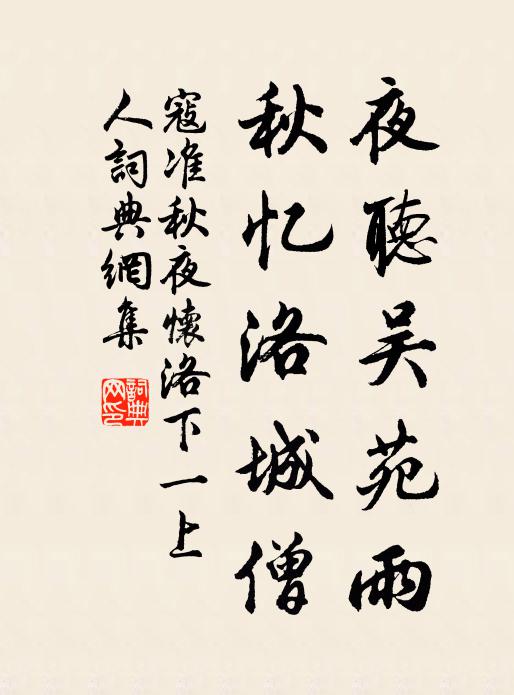 夜聽吴苑雨
秋忆洛城僧
寇准秋夜懷洛下一上
人詞典網集
詞典网印